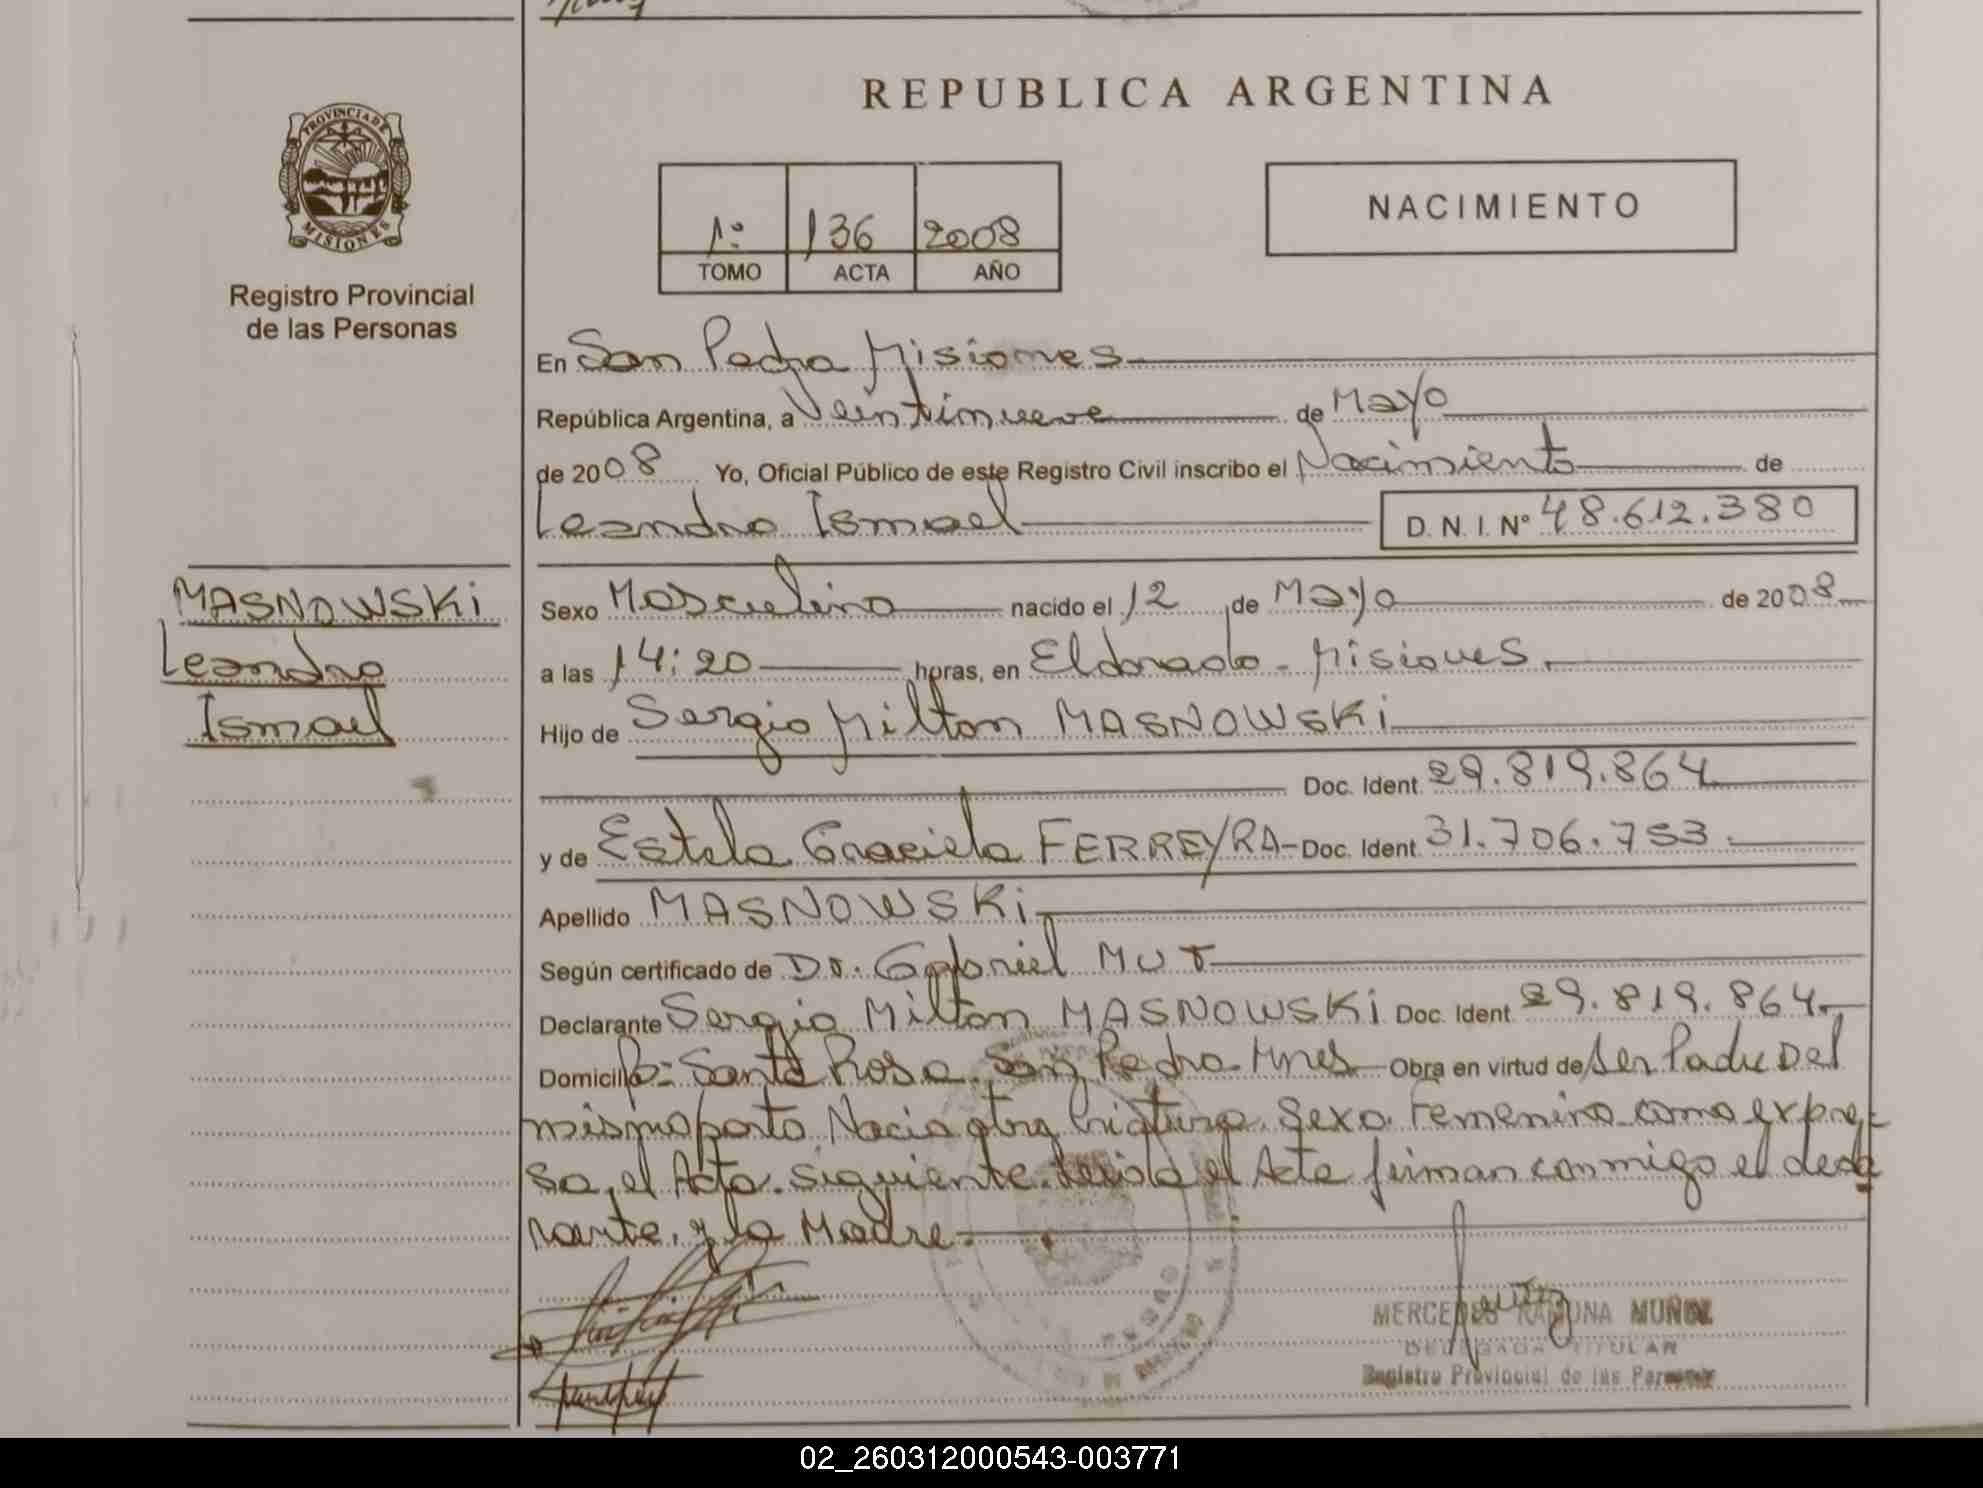 REPUBLICA ARGENTINA
PROVINCIA DE
MISIONES
Registro Provincial
de las Personas
1º 136 2008
TOMO ACTA AÑO
NACIMIENTO
En San Pedro Misiones
República Argentina, a Veintinueve de Mayo
de 2008 Yo, Oficial Público de este Registro Civil inscribo el Nacimiento de
Leandro Ismael D. N. I. Nº 48.612.380
MASNOWSKi
Leandro
Ismael
Sexo Masculino nacido el 12 de Mayo de 2008
a las 14:20 horas, en Eldorado - Misiones.
Hijo de Sergio Milton MASNOWSKi
Doc. Ident. 29.819.864
y de Estela Graciela FERREYRA- Doc. Ident. 31.706.753
Apellido MASNOWSKi
Según certificado de Dr. Gabriel MUT
Declarante Sergio Milton MASNOWSKi Doc. Ident. 29.819.864
Domicilio Santa Rosa San Pedro Mnes Obra en virtud de ser Padre Del
mismo parto Nacio otra Criatura Sexo Femenino como expre-
sa el Acta siguiente. Leida el Acta firman conmigo el decla
rante y la Madre.
MERCEDES RAMONA MUÑOZ
DELEGADA TITULAR
Registro Provincial de las Personas
02_260312000543-003771